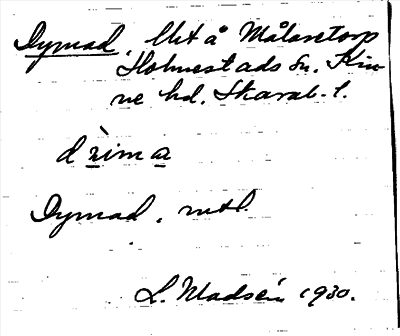 Dymad, Utt å Målaretorp
Holmestads sn. Kin-
ne hd. Skarab. l.
dimar
Dymad, mtl.
L. Madsén 1930.